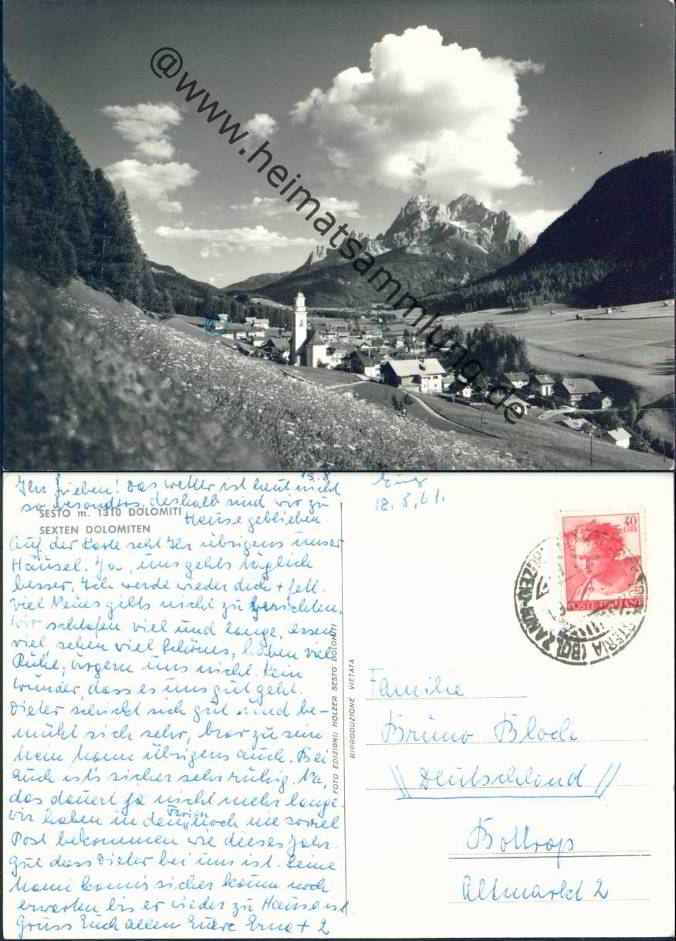 @www.heimatsammlung.de
15.8.
Ihr Lieben! Das Wetter ist heut nicht
so besonders, deshalb sind wir zu
Hause geblieben.
SESTO m. 1310 DOLOMITI
SEXTEN DOLOMITEN
Auf der Karte seht Ihr übrigens unser
Häusel. Ja, uns gehts täglich
besser, Ich werde wieder dick + fett.
Viel Neues gibts nicht zu berichten.
Wir schlafen viel und lange, essen
viel sehen viel Schönes, haben viel
Ruhe, ärgern uns nicht. Kein
Wunder, dass es uns gut geht.
Dieter schickt sich gut und be-
müht sich sehr, brav zu sein.
Mein Mann übrigens auch. Bei
Euch ists sicher sehr ruhig. Na,
das dauert ja nicht mehr lange.
Wir haben in den Ferien noch nie soviel
Post bekommen wie dieses Jahr.
Gut dass Dieter bei uns ist. Seine
Mami kanns sicher kaum noch
erwarten bis er wieder zu Hause ist.
Gruss Euch allen Eure Erna + 2
FOTO EDIZIONI: HOLZER SESTO DOLOMITI
RIPRODUZIONE VIETATA
Eing
18.8.61.
40
LIRE
POSTE ITALIANE
(BOLZANO)
Familie
Bruno Block
Deutschland
Bottrop
Altmarkt 2